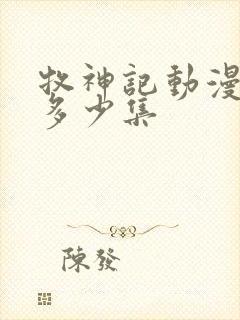 牧神記動漫
多少集
陳發